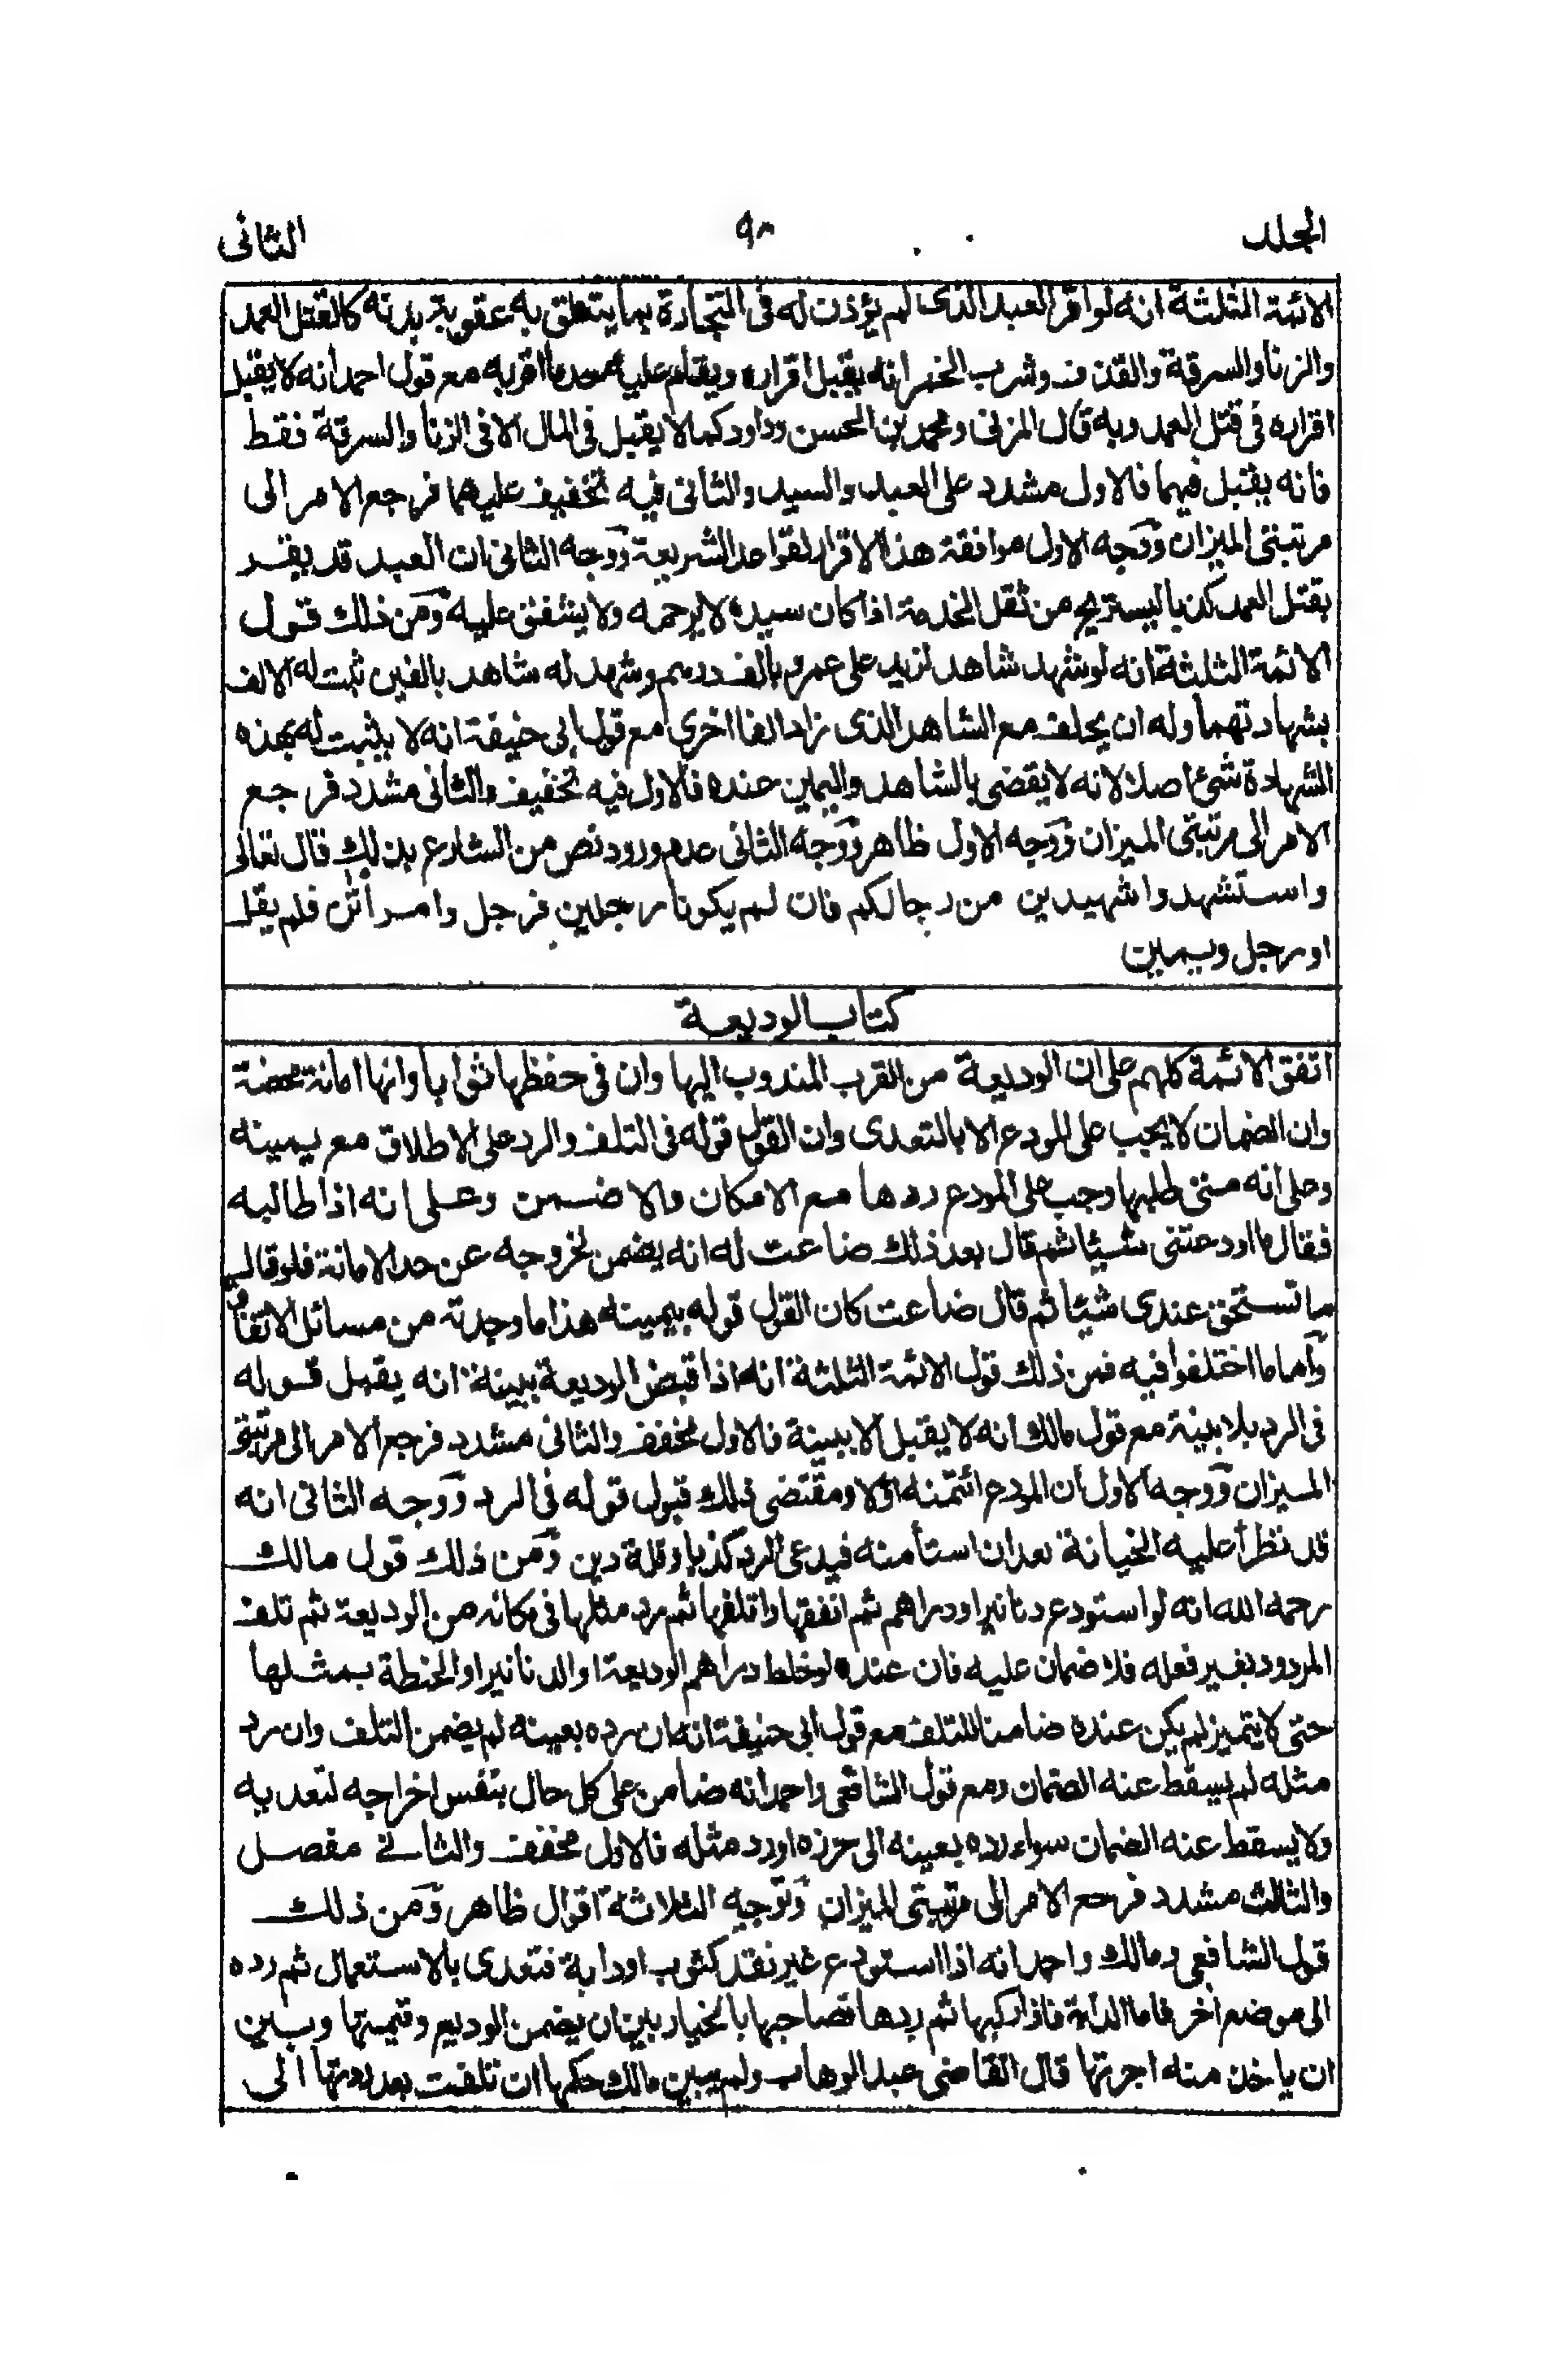 المجلد ٩٣ الثانى
الائمة الثلثة انه لو اقر العبد الذى لم يؤذن له فى التجارة بما يتعلق به عقوبة بدنه كالقتل العمد
والزنا والسرقة والقذف وشرب الخمر انه يقبل اقراره ويقام عليه حد ما اقر به مع قول احمد انه لا يقبل
اقراره فى قتل العمد وبه قال المزنى ومحمد بن الحسن وداود كما لا يقبل فى المال الا فى الزنا والسرقة فقط
فانه يقبل فيهما فالاول مشدد على العبد والسيد والثانى فيه تخفيف عليهما فرجع الامر الى
مرتبتى الميزان ووجه الاول موافقة هذا الاقرار لقواعد الشريعة ووجه الثانى ان العبد قد يقر
بقتل العمد كذبا ليستريح من ثقل الخدمة اذا كان سيده لا يرحمه ولا يشفق عليه ومن ذلك قول
الائمة الثلثة انه لو شهد شاهد لزيد على عمرو بالف درهم وشهد له شاهد بالفين ثبت له الالف
بشهادتهما وله ان يحلف مع الشاهد الذى زاد الفا اخرى مع قول ابى حنيفة انه لا يثبت له بهذه
الشهادة شئ اصلا لانه لا يقضى بالشاهد واليمين عنده فالاول فيه تخفيف والثانى مشدد فرجع
الامر الى مرتبتى الميزان ووجه الاول ظاهر ووجه الثانى عدم ورود نص من الشارع بذلك قال تعالى
واستشهدوا شهيدين من رجالكم فان لم يكونا رجلين فرجل وامرأتن فلم يقل
او رجل ويمين
كتاب الوديعة
اتفق الائمة كلهم على ان الوديعة من القرب المندوب اليها وان فى حفظها ثوابا وانها امانة محضة
وان الضمان لا يجب على المودع الا بالتعدى وان القول قوله فى التلف والرد على الاطلاق مع يمينه
وعلى انه متى طلبها وجب على المودع ردها مع الامكان والا ضمن وعلى انه اذا طالبه
فقال ما اودعتنى شيئا ثم قال بعد ذلك ضاعت له انه يضمن لخروجه عن حد الامانة فلو قال
ما تستحق عندى شيئا ثم قال ضاعت كان القول قوله بيمينه هذا ما وجدته من مسائل الاتفاق
وأما ما اختلفوا فيه فمن ذلك قول الائمة الثلثة انه اذا قبض الوديعة ببينة انه يقبل قوله
فى الرد بلا بينة مع قول مالك انه لا يقبل الا ببينة فالاول مخفف والثانى مشدد فرجع الامر الى مرتبتى
الميزان ووجه الاول أن المودع ائتمنه اولا ومقتضى ذلك قبول قوله فى الرد ووجه الثانى انه
قد تطرأ عليه الخيانة بعد ان استأمنه فيدعى الرد كذبا وقلة دين ومن ذلك قول مالك
رحمه الله انه لو استودع دنانير او دراهم ثم انفقها او اتلفها ثم رد مثلها فى مكانه من الوديعة ثم تلف
المردود بغير فعله فلا ضمان عليه فان عنده لو خلط دراهم الوديعة او الدنانير او الحنطة بمثلها
حتى لا يتميز لم يكن عنده ضامنا للتلف مع قول ابى حنيفة انه ان رده بعينه لم يضمن التلف وان رد
مثله لم يسقط عنه الضمان ومع قول الشافعى واحمد انه ضامن على كل حال بنفس اخراجه لتعديه
ولا يسقط عنه الضمان سواء رده بعينه الى حرزه او رد مثله فالاول مخفف والثانى مفصل
والثالث مشدد فرجع الامر الى مرتبتى الميزان وتوجيه الثلاثة اقوال ظاهر ومن ذلك
قول الشافعى ومالك واحمد انه اذا استودع غير نقد كثوب او دابة فتعدى بالاستعمال ثم رده
الى موضع اخر فاما الدابة فاذا ركبها ثم ردها فصاحبها بالخيار بين ان يضمن الوديع وقيمتها وبين
ان ياخذ منه اجرتها قال القاضى عبد الوهاب ولم يبين مالك حكمها ان تلفت بعد ردتها الى